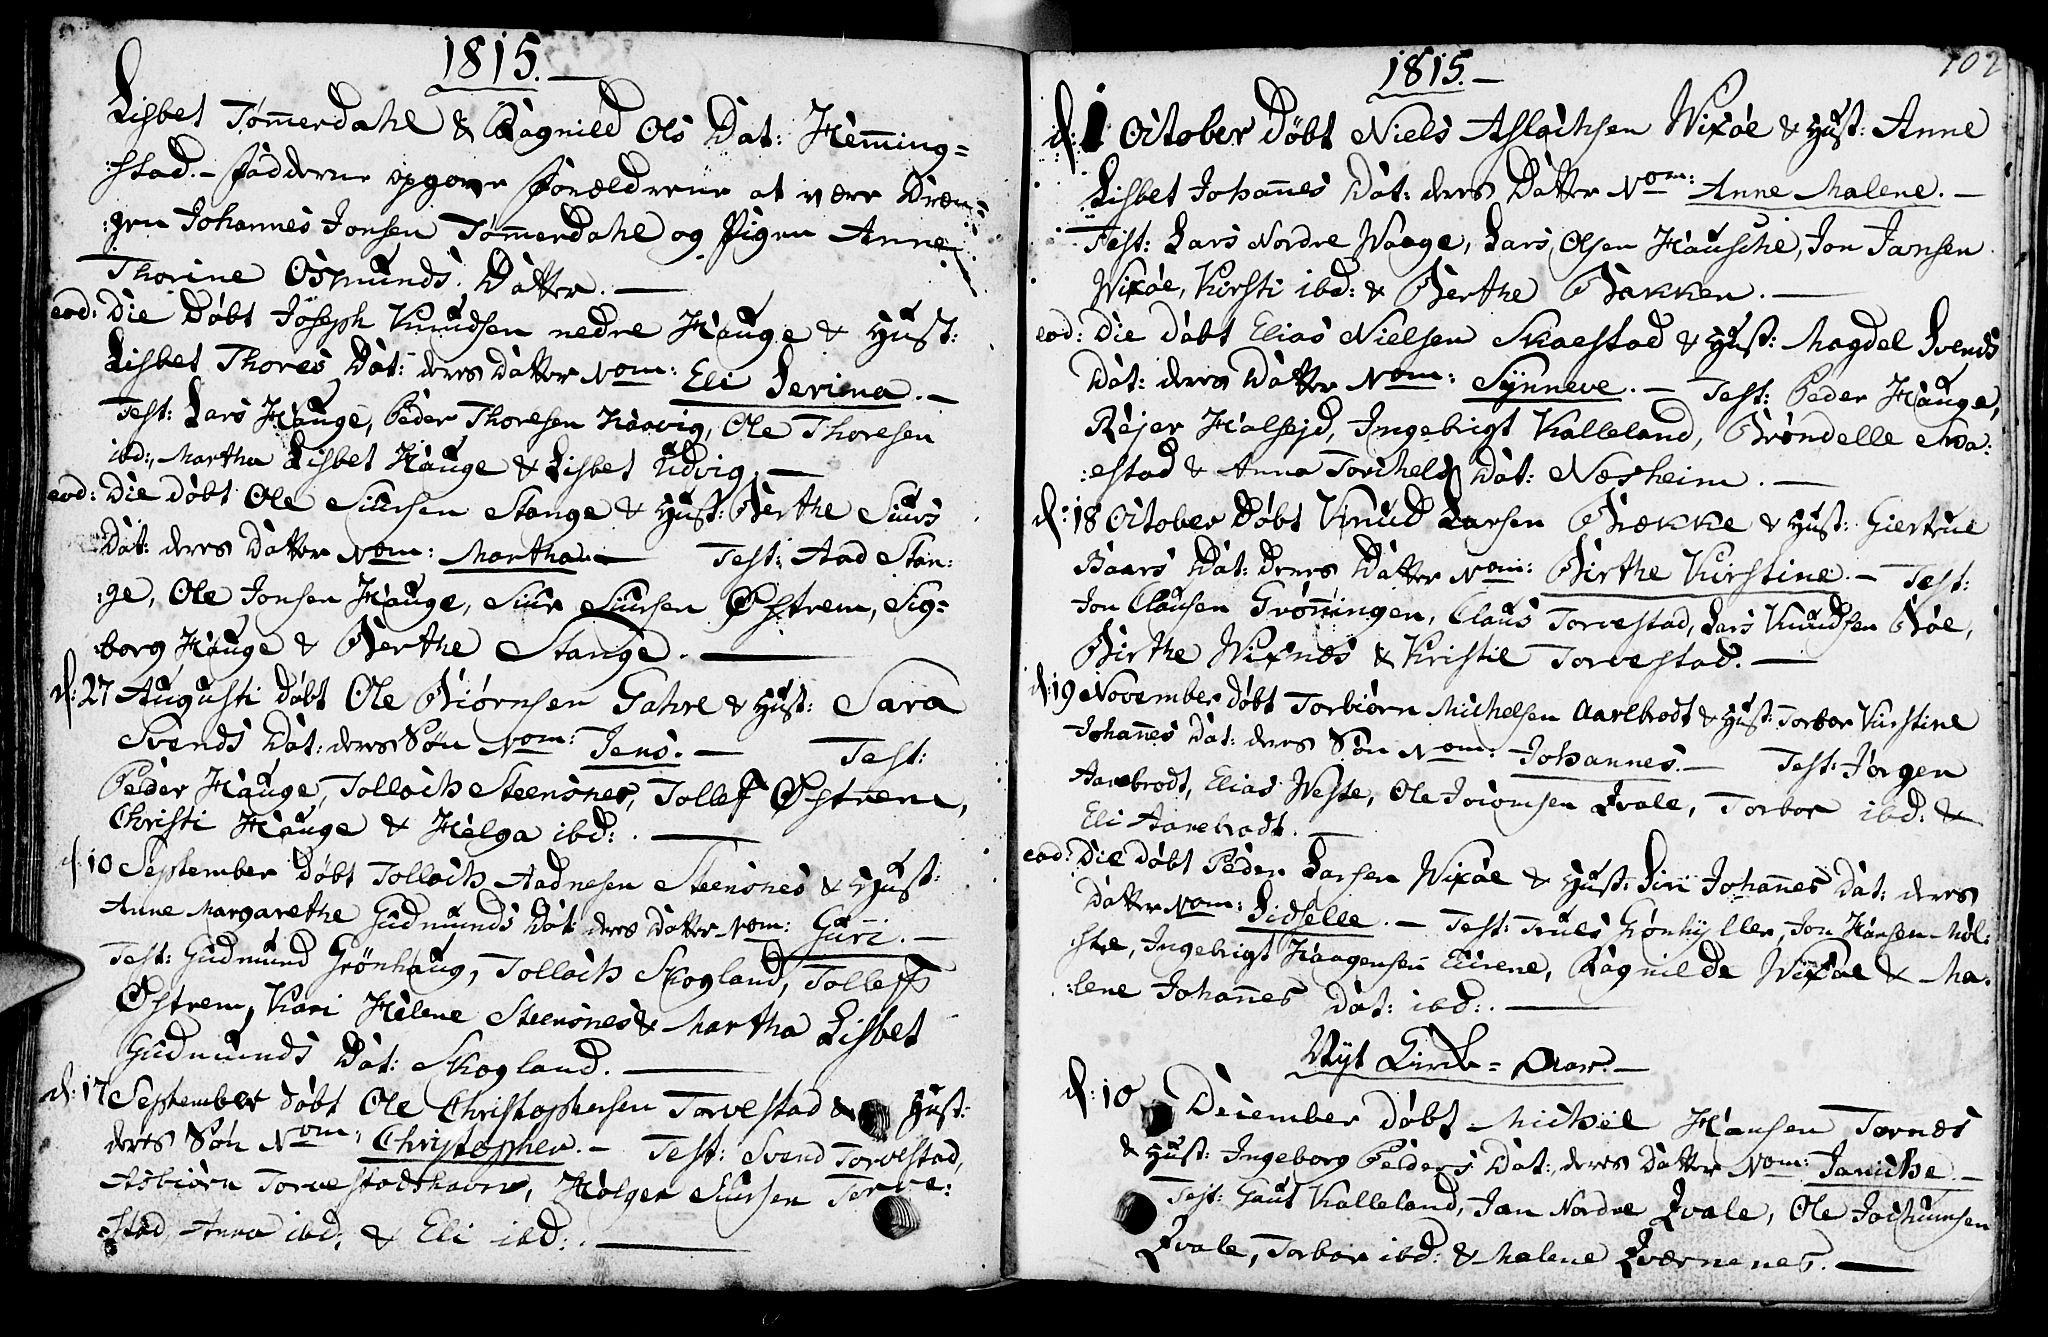 1815.
Lisbet Tømmerdahl & Ragnild Ols Dat: Hemming=
:stad. - Fadderne opgover Forældrene at være Dren=
:gen Johannes Jonsen Tømmerdahl og Pigen Anne
Thorine Osmunds Datter.
eod: Die døbt Joseph Knudsen nedre Hauge & Hust:
Lisbet Thores Dat: deres Datter Nom: Eli Serina. -
Test: Lars Hauge, Peder Thoresen Haavig, Ole Thoresen
ibd:, Martha Lisbet Hauge & Lisbet Udvig. -
eod: Die døbt Ole Siursen Stange & Hust: Berthe Siurs
Dat: deres Datter Nom: Martha. - Test: Aad Stan:
:ge, Ole Jonsen Hauge, Siur Siursen Østrem, Sig=
:borg Hauge & Berthe Stange. -
d: 27 Augusti døbt Ole Biørnsen Gahre & Hust: Sara
Svends Dat: deres Søn Nom: Jens. - Test:
Peder Hauge, Tollach Steensnes, Tollef Østrem,
Christi Hauge & Helga ibd: . -
d. 10 September døbt Tollach Aadnesen Steensnes & Hust:
Anne Margarethe Gudmunds Dat: deres Datter Nom: Guri. -
Test: Gudmund Grönhaug, Tollach Skogland, Tolleff
Østrem, Kari Helene Steensnes & Martha Lisbet
Gudmunds Dat: Skogland. -
d: 17 September døbt Ole Christophersen Torvestad & Hust:
deres Søn Nom: Christopher. - Test: Svend Torvestad,
Asbiørn Torvestadshavn, Holger Siursen Torve:
:stad, Anna ibd: & Eli ibd: . -
102
1815. -
d: 1 October døbt Niels Aslachsen Wixøe & Hust: Anne
Lisbet Johannes Dat: deres Datter Nom: Anne Malene. -
Test: Lars Nordre Waage, Lars Olsen Hausche, Jon Jansen
Wixøe, Kirsti ibd: & Berthe Bakken. -
eod: Die døbt Elias Nielsen Skaestad & Hust: Magdel Svends
Dat: deres Datter Nom: Synneve. - Test: Peder Hauge,
Rejer Halsejd, Ingebrigt Kalleland, Brøndelle
:estad & Anna Torchels Dat: Næsheim. -
d: 18 October døbt Knud Larsen Brække & Hust: Giertrue
Baars Dat: deres Datter Nom: Birthe Kirstine. - Test:
Jon Clausen Grønningen, Claus Torvestad, Lars Knudsen Bøe,
Birthe Wixnæs & Kristie Torvestad. -
d: 19 November døbt Torbiørn Michelsen Aarebrodt & Hust: Torbor Kirstine
Johannes Dat: deres Søn Nom: Johannes. - Test: Jørgen
Aarebrodt, Elias Weste, Ole Jocomsen Qvale, Torbor ibd: &
Eli Aarebrodt. -
eod: Die døbt Peder Larsen Wixøe & Hust: Siri Johannes Dat: deres
Datter Nom: Sidselle. - Test: Truls Grønhyller, Jon Hansen Møl:
:stre, Ingebrigt Haagensen Eirene, Ragnilde Wixøe & Ma:
:lene Johannes Dat: ibd: . -
Nyt Kirke=Aar. -
d: 10 December døbt Michel Hansen Tornæs
& Hust: Ingeborg Peders Dat: deres Datter Nom: Janiche. -
Test: Gaut Kalleland, Jan Nordre Qvale, Ole Jochumsen
Qvale, Torbor ibd: & Malene Qværnenes. -